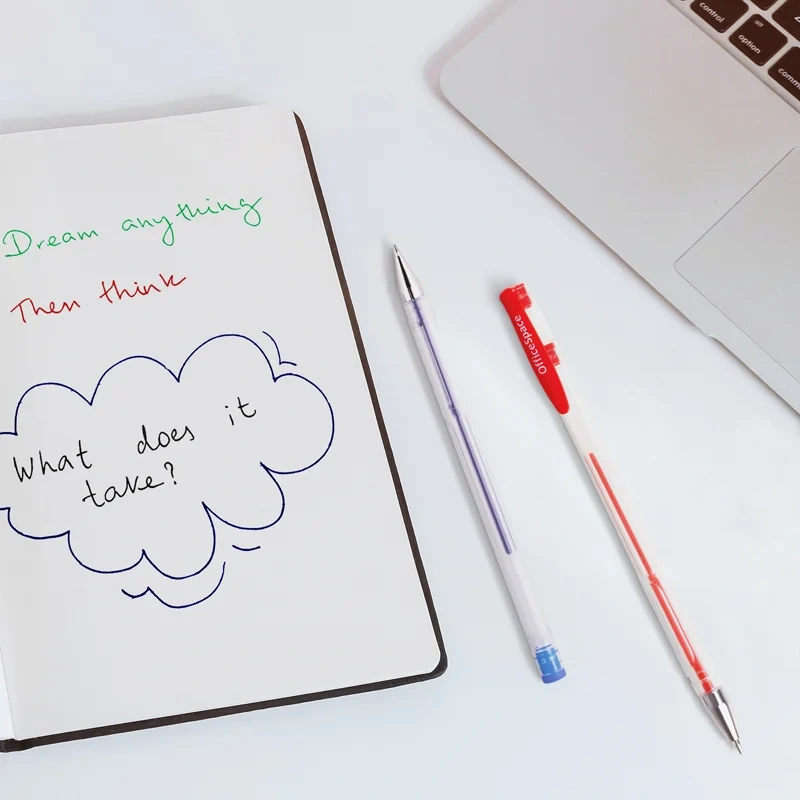 Dream anything
Then think
What does it
take?
OfficeSpace
control
alt
option